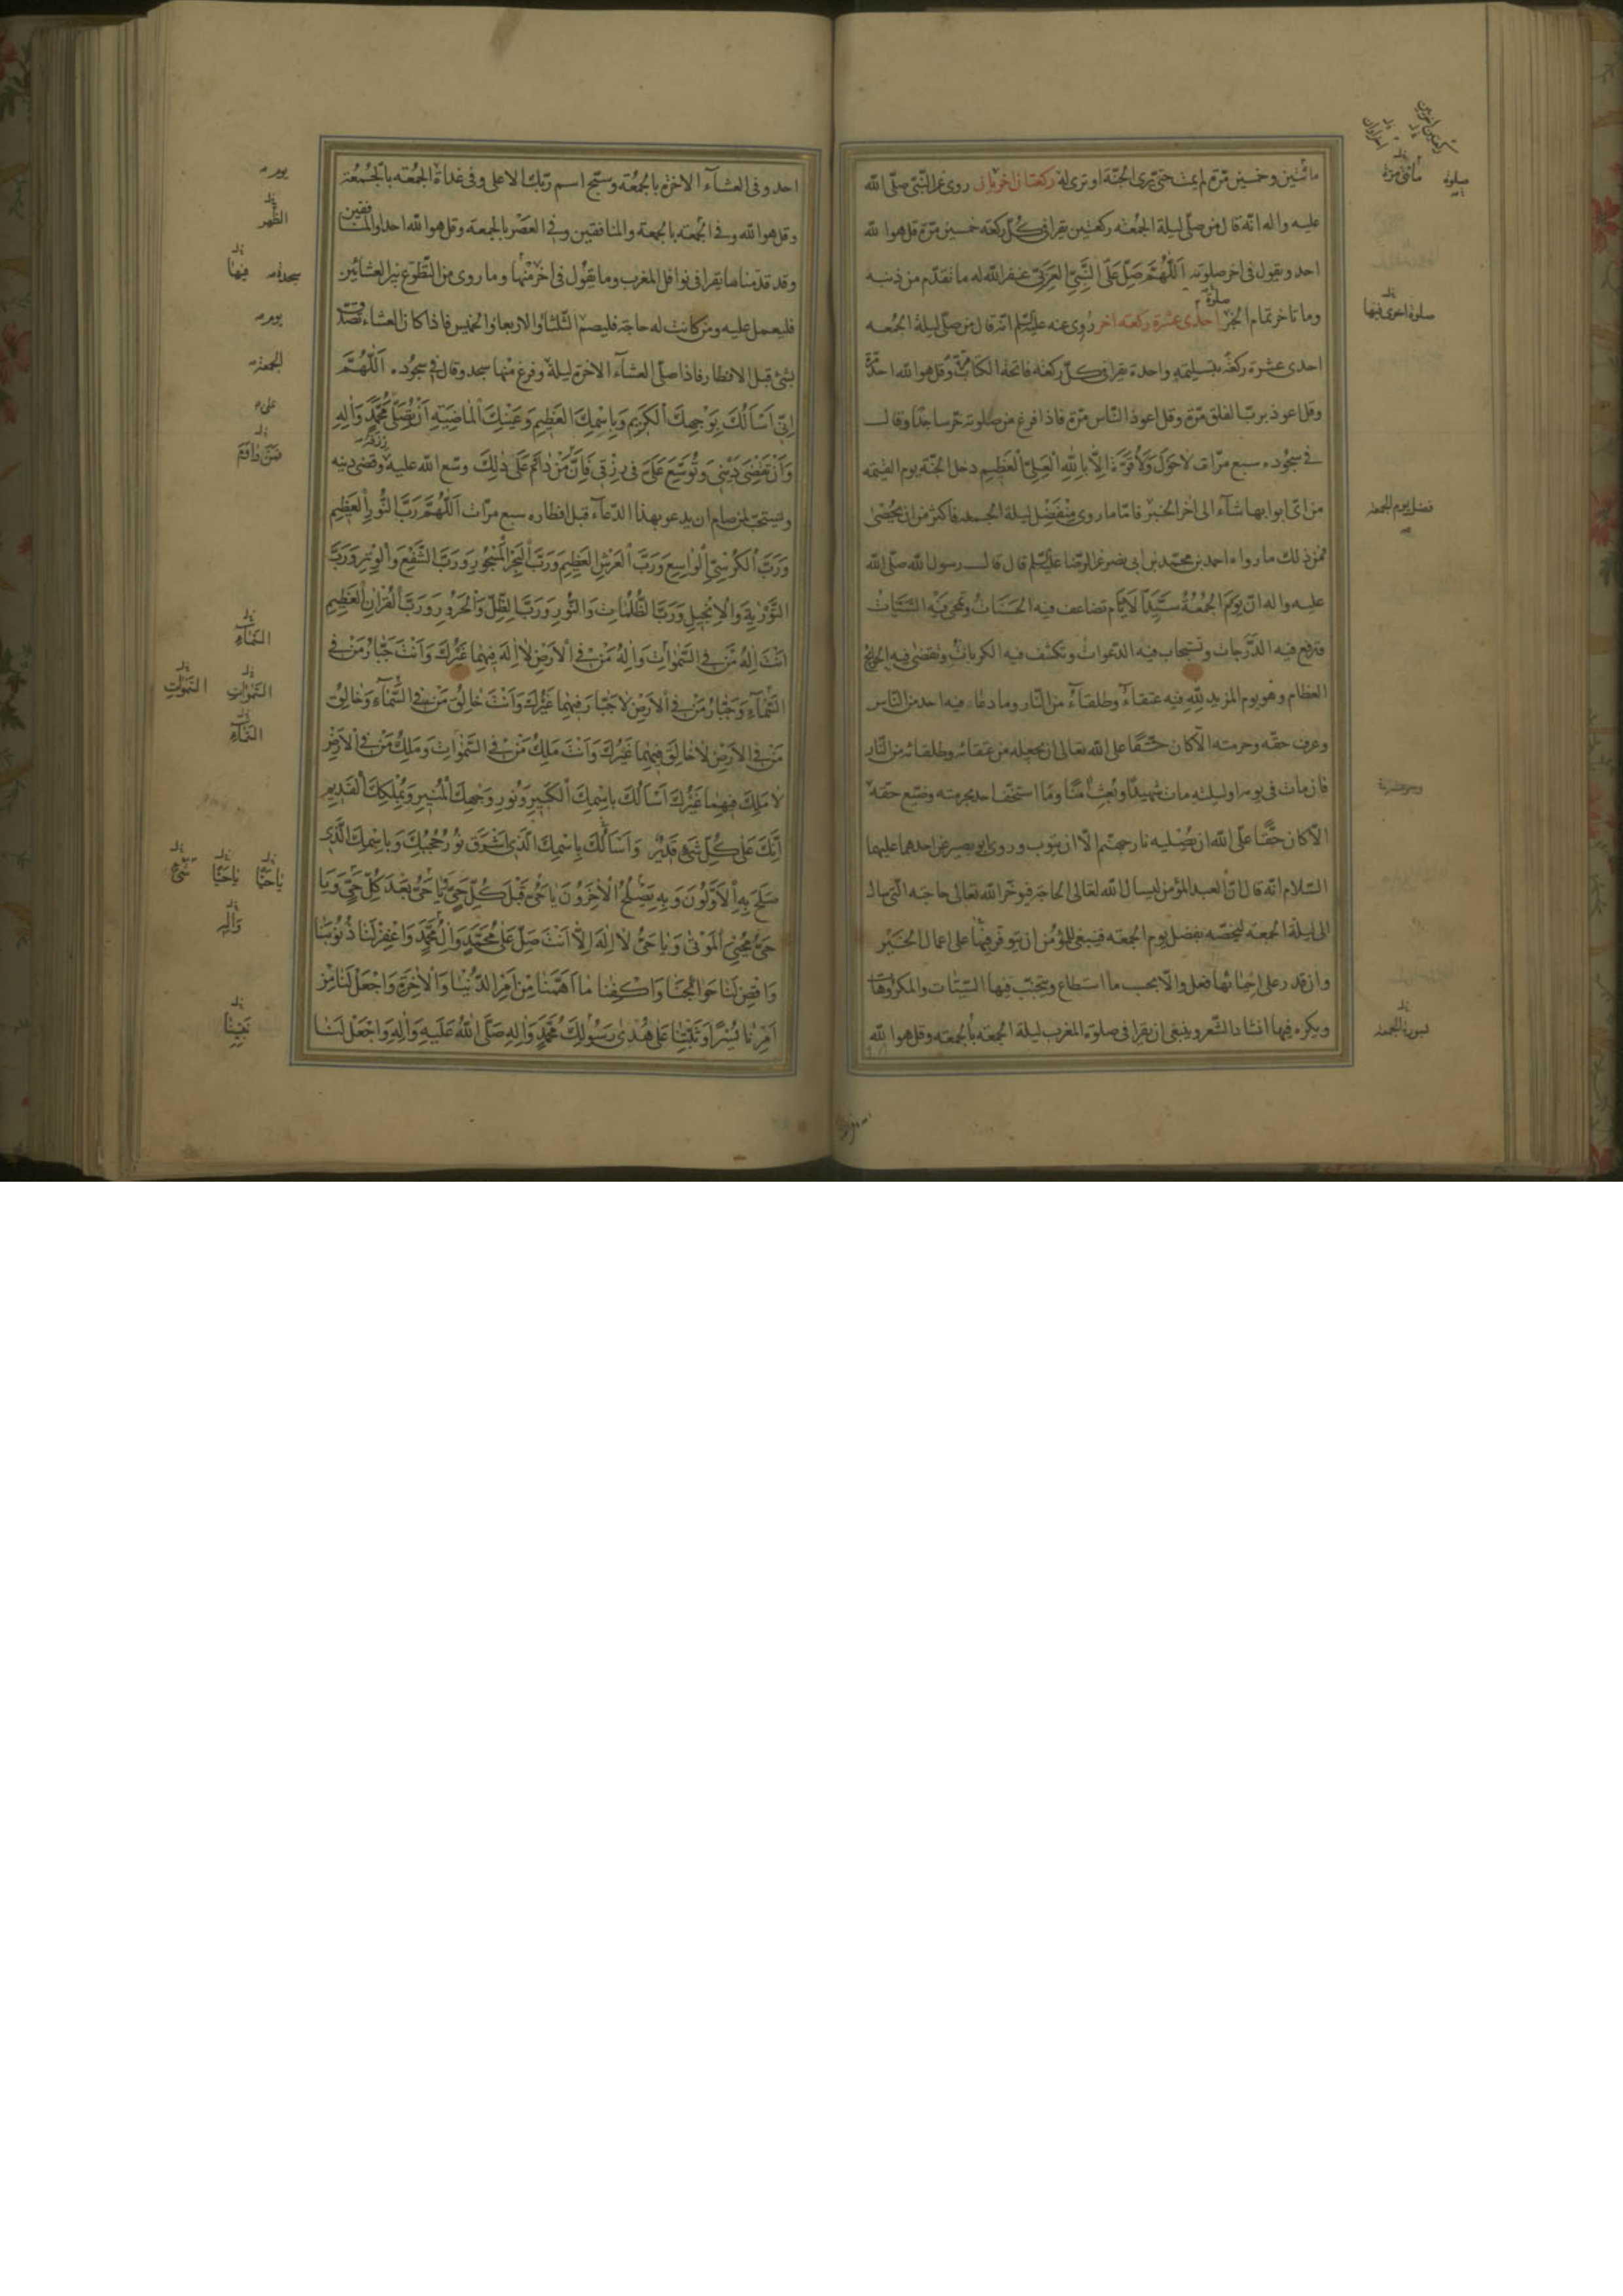 مائتين وخمسين مرّة لم يمت حتى يرى الجنّة او ترى له ركعتان اخريان روى عن النّبى صلّى الله
عليه واله انّه قال من صلّى ليلة الجمعة ركعتين يقرا فى كلّ ركعة خمسين مرّة قل هوا لله
احد ويقول فى اخر صلوته اَللّٰهُمَّ صَلِّ عَلَى النَّبِىِّ العَرَبِىِّ غفر الله له ما تقدّم من ذنبه
وما تاخر تمام الخبر صلوة احدى عشرة ركعة اخر روى عنه عليه السّلم انّه قال من صلّى ليلة الجمعه
احدى عشرة ركعة بتسليمة واحدة يقرا فى كلّ ركعة فاتحة الكتاب مرّة وقل هوا لله احد مرّة
وقل اعوذ بربّ الفلق مرّة وقل اعوذ النّاس مرّة فاذا فرغ من صلوته خرّ ساجدًا وقال
فى سجوده سبع مرّات لَاحَوْلَ وَلَاقُوَّةَ اِلَّا بِاللهِ العَلِىِّ العَظِيمِ دخل الجنّة يوم القيمة
من اىّ ابوابها شآء الى اخر الخبر فامّا ما روى من فضل ليلة الجمعة فاكثر من ان يحصى
فمن ذلك ما رواه احمد بن محمّد بن ابى نصر عن الرّضا عليه السّلم قال قال رسول الله صلّى الله
عليه واله ان يوم الجمعة سيّد الايّام تضاعف فيه الحسنات وتمحى فيه السّيّات
وترفع فيه الدّرجات وتستجاب فيه الدّعوات وتكشف فيه الكربات وتقضى فيه الحوايج
العظام وهو يوم المزيد لله فيه عتقاء وطلقاء من النّار وما دعا فيه احد من النّاس
وعرف حقّه وحرمته الّا كان حقّا على الله تعالى ان يجعله من عتقائه وطلقائه من النّار
فان مات فى يومه او ليلته مات شهيدًا وبُعث امنًا وما استخف احد بحرمته وضيّع حقّه
الّا كان حقًّا على الله ان يصليه نار جهنّم الّا ان يتوب وروى ابو بصير عن احدهما عليهما
السّلام انّه قال انّ العبد المؤمن ليسال الله تعالى الحاجة فيوخّر الله تعالى حاجته الّتى سال
الى ليلة الجمعة ليخصّه بفضل يوم الجمعة فينبغى للمؤمن ان يتوفّر فيها على اعمال الخير
وان قدر على احيائها فعل والّا بحسب ما استطاع ويتجنّب فيها السّيّئات والمكروهات
ويكره فيها انشاد الشّعر وينبغى ان يقرا فى صلوة المغرب ليلة الجمعة بالجمعة وقل هوا لله
مأتى مرّة
صلوة
صلوة اخرى فيها
فضل يوم الجمعة
بسورة الجمعة
احد وفى العشآء الاخرة بالجمعة وسبّح اسم ربّك الاعلى وفى غداة الجمعة بالجمعة
وقل هوا لله وفى الجمعة بالجمعة والمنافقين وفى العصر بالجمعة وقل هوا لله احد او المنافقين
وقد قدّمنا ما يقرا فى نوافل المغرب وما يقول فى اخر منها وما روى من التّطوّع بين العشائين
فليعمل عليه ومن كانت له حاجة فليصم الثّلثا والاربعا والخميس فاذا كان العشاء تصدّق
بشئ قبل الافطار فاذا صلّى العشآء الاخرة ليلة وفرغ منها سجد وقال فى سجوده اَللّٰهُمَّ
اِنِّى اَسْاَلُكَ بِوَجْهِكَ الكَرِيمِ وَبِاسْمِكَ العَظِيمِ وَعَيْنِكَ الماضِيَةِ اَنْ تُصَلِّىَ مُحَمَّدٍ وَاٰلِهِ
وَاَنْ تَقْضِىَ دَيْنِى وَتُوَسِّعَ عَلَىَّ فى رِزْقِى فَاِنَّ مَنْ دامَ عَلَى ذٰلِكَ وسّع الله عليه رزقه وقضى دينه
ويستحبّ لمن صام ان يدعو بهذا الدّعآء قبل افطاره سبع مرّات اَللّٰهُمَّ رَبَّ النُّورِ العَظِيمِ
وَرَبَّ الكُرْسِىِّ الواسِعِ وَرَبَّ العَرْشِ العَظِيمِ وَرَبَّ البَحْرِ المَسْجُورِ وَرَبَّ الشَّفْعِ وَالوِتْرِ وَرَبَّ
التَّوْرٰيةِ وَالاِنْجِيلِ وَرَبَّ الظُّلُمَاتِ وَالنُّورِ وَرَبَّ الظِّلِّ وَالحَرُورِ وَرَبَّ القُرْاٰنِ العَظِيمِ
اَنْتَ اِلٰهُ مَنْ فِى السَّمٰوَاتِ وَاِلٰهُ مَنْ فِى الاَرْضِ لا اِلٰهَ فِيهِما غَيْرُكَ وَاَنْتَ جَبّارُ مَنْ فى
السَّمآءِ وَجَبّارُ مَنْ فِى الاَرْضِ لا جَبّارَ فِيهِما غَيْرُكَ وَاَنْتَ خالِقُ مَنْ فِى السَّمآءِ وَخالِقُ
مَنْ فِى الاَرْضِ لا خالِقَ فِيهِما غَيْرُكَ وَاَنْتَ مَلِكُ مَنْ فِى السَّمٰوَاتِ وَمَلِكُ مَنْ فِى الاَرْضِ
لا مَلِكَ فِيهِما غَيْرُكَ اَسْاَلُكَ بِاسْمِكَ الكَبِيرِ وَنُورِ وَجْهِكَ المُنِيرِ وَبِمُلْكِكَ القَدِيمِ
اِنَّكَ عَلى كُلِّ شَىْءٍ قَدِيرٌ وَاَسْاَلُكَ بِاسْمِكَ الَّذى اَشْرَقَ نُورُ حُجُبِكَ وَبِاسْمِكَ الَّذى
صَلَحَ بِهِ الاَوَّلُونَ وَبِهِ يَصْلُحُ الاٰخِرُونَ يا حَىُّ قَبْلَ كُلِّ حَىٍّ يا حَىُّ بَعْدَ كُلِّ حَىٍّ وَيا
حَىُّ مُحْيِىَ المَوْتى وَيا حَىُّ لا اِلٰهَ اِلّا اَنْتَ صَلِّ عَلى مُحَمَّدٍ وَالِ مُحَمَّدٍ وَاغْفِرْ لَنا ذُنُوبَنا
وَاقْضِ لَنا حَوائِجَنا وَاكْفِنا ما اَهَمَّنا مِنْ اَمْرِ الدُّنْيا وَالاٰخِرَةِ وَاجْعَلْ لَنا مِنْ
اَمْرِنا يُسْرًا وَثَبِّتْنا عَلى هُدى رَسُولِكَ مُحَمَّدٍ وَاٰلِهِ صَلَّى اللهُ عَلَيهِ وَاٰلِهِ وَاجْعَلْ لَنا
يوم
الظّهر
فيها
يوم
الجمعة
على
السّماء
السّموات
السّموات
السّماء
يا حيّا
يا حيّا
واله
نبيّنا